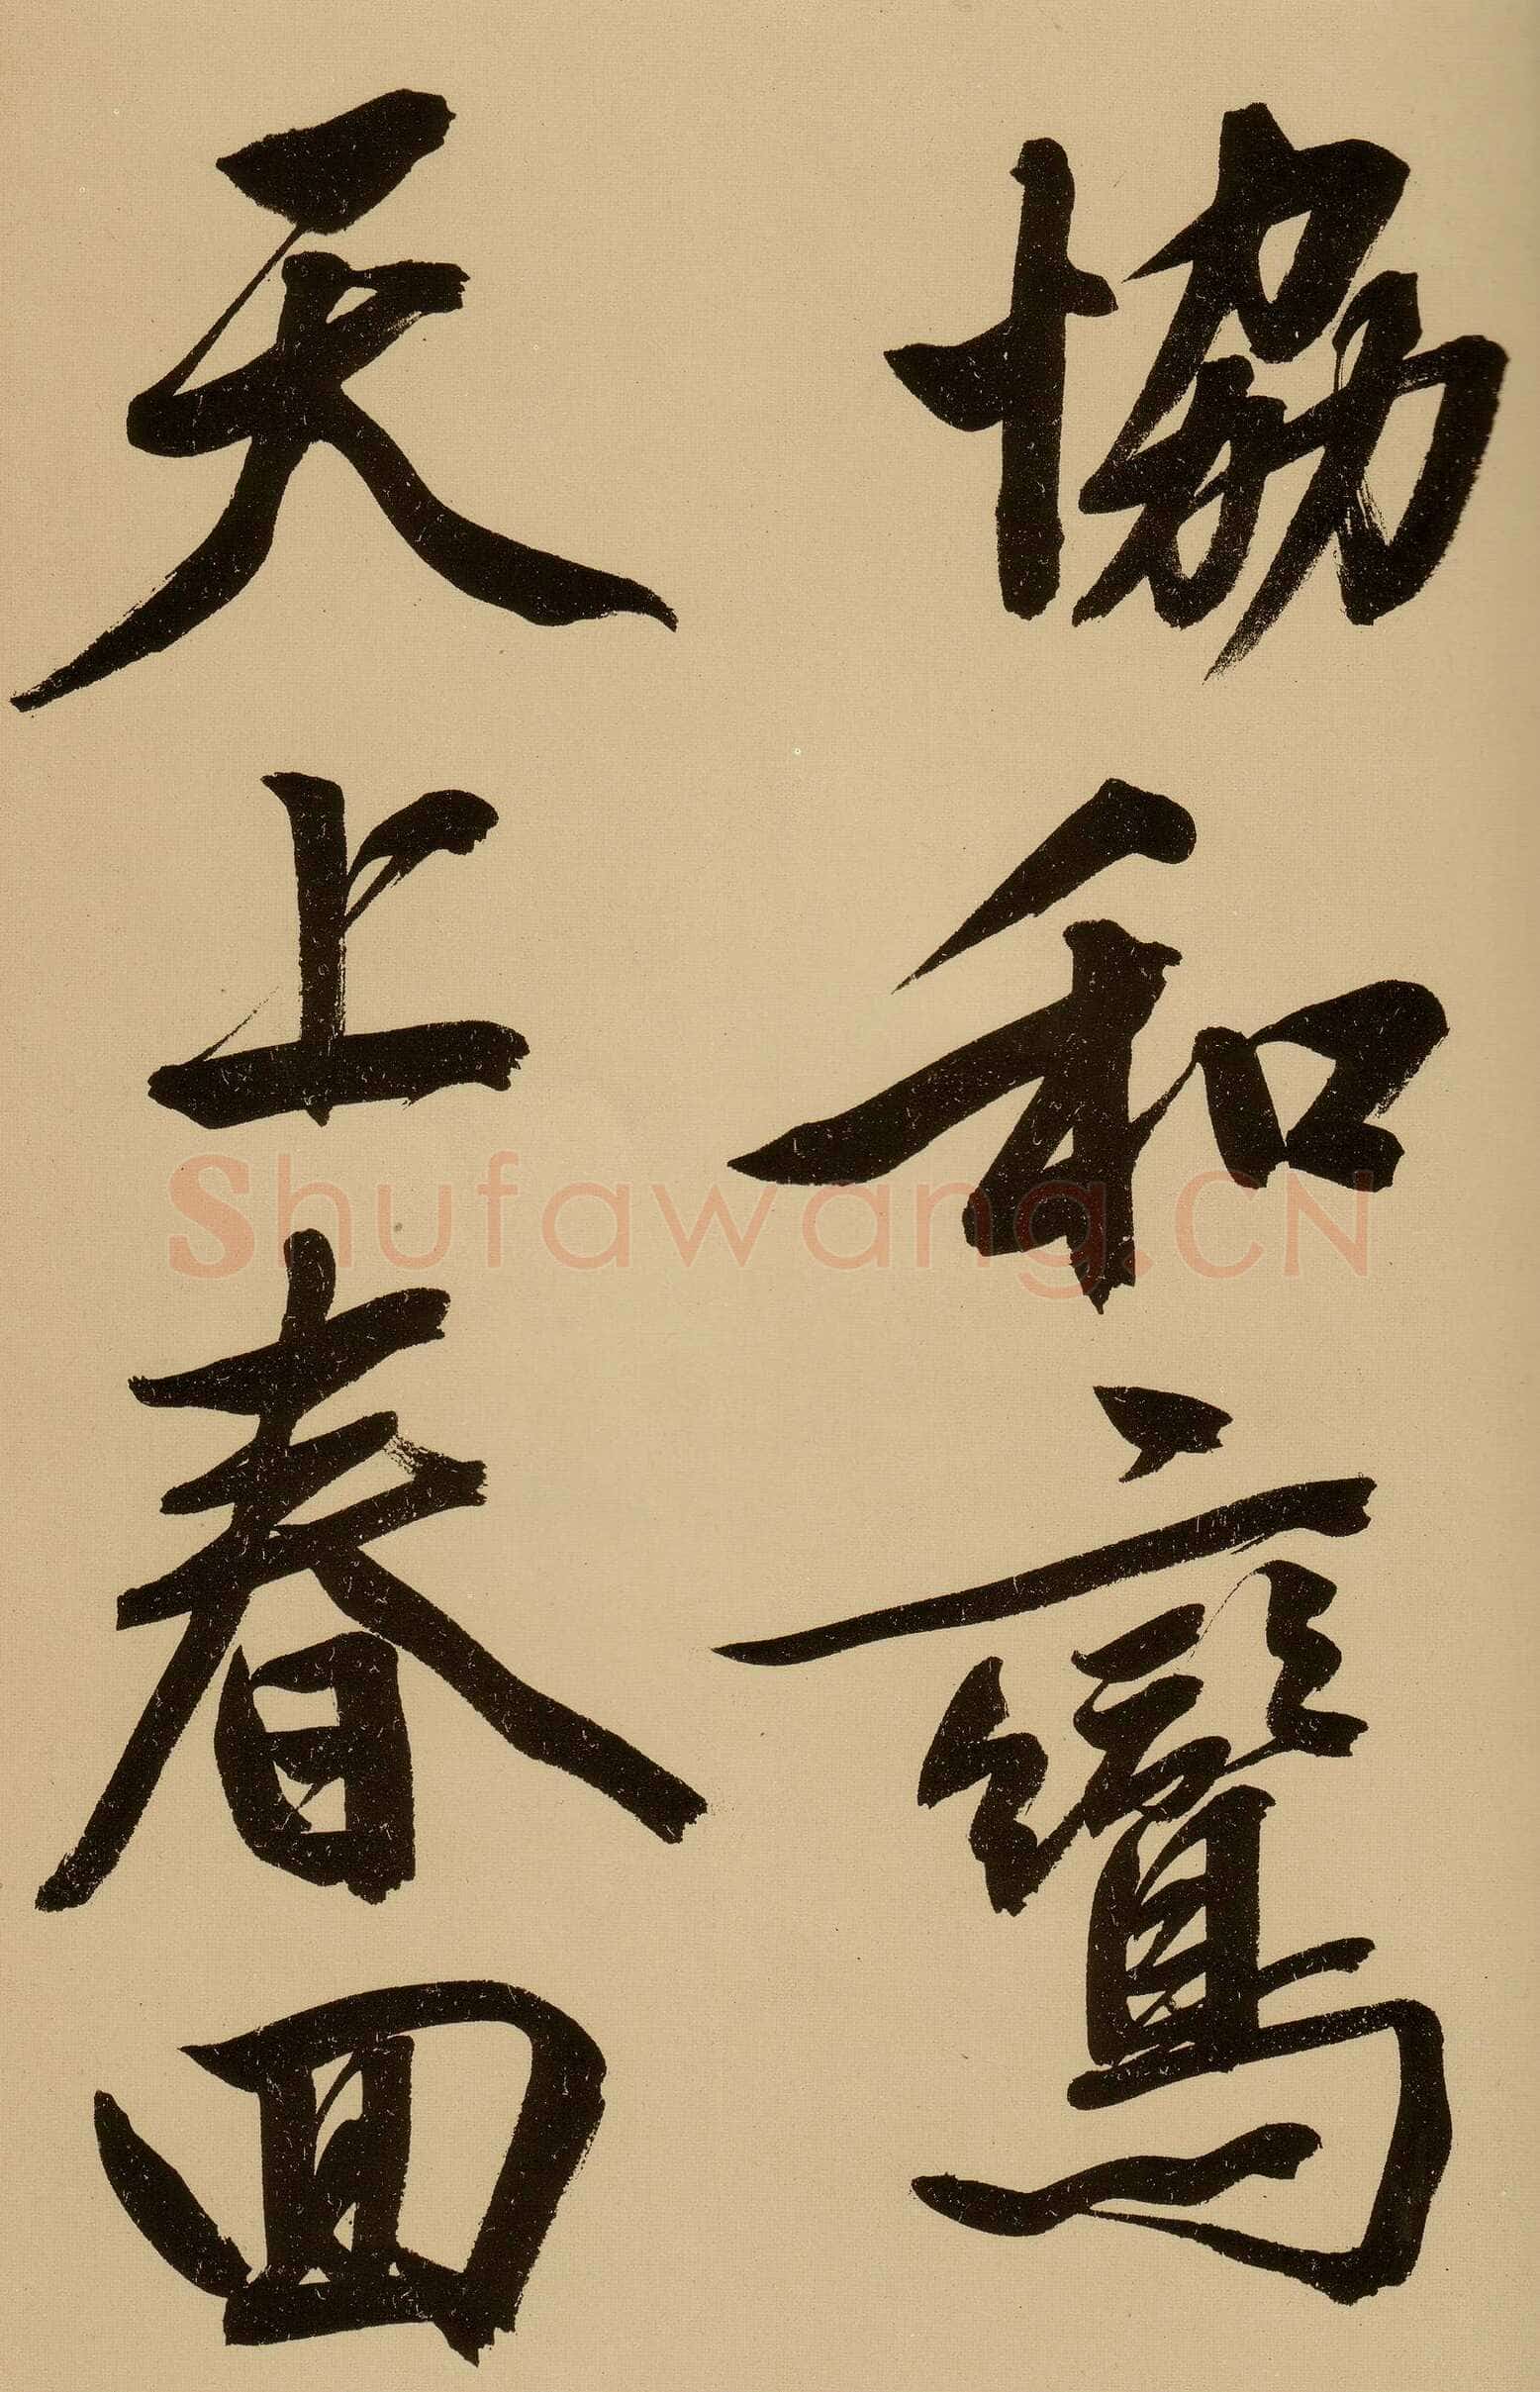 協和鸞
天上春回
Shufawang.CN